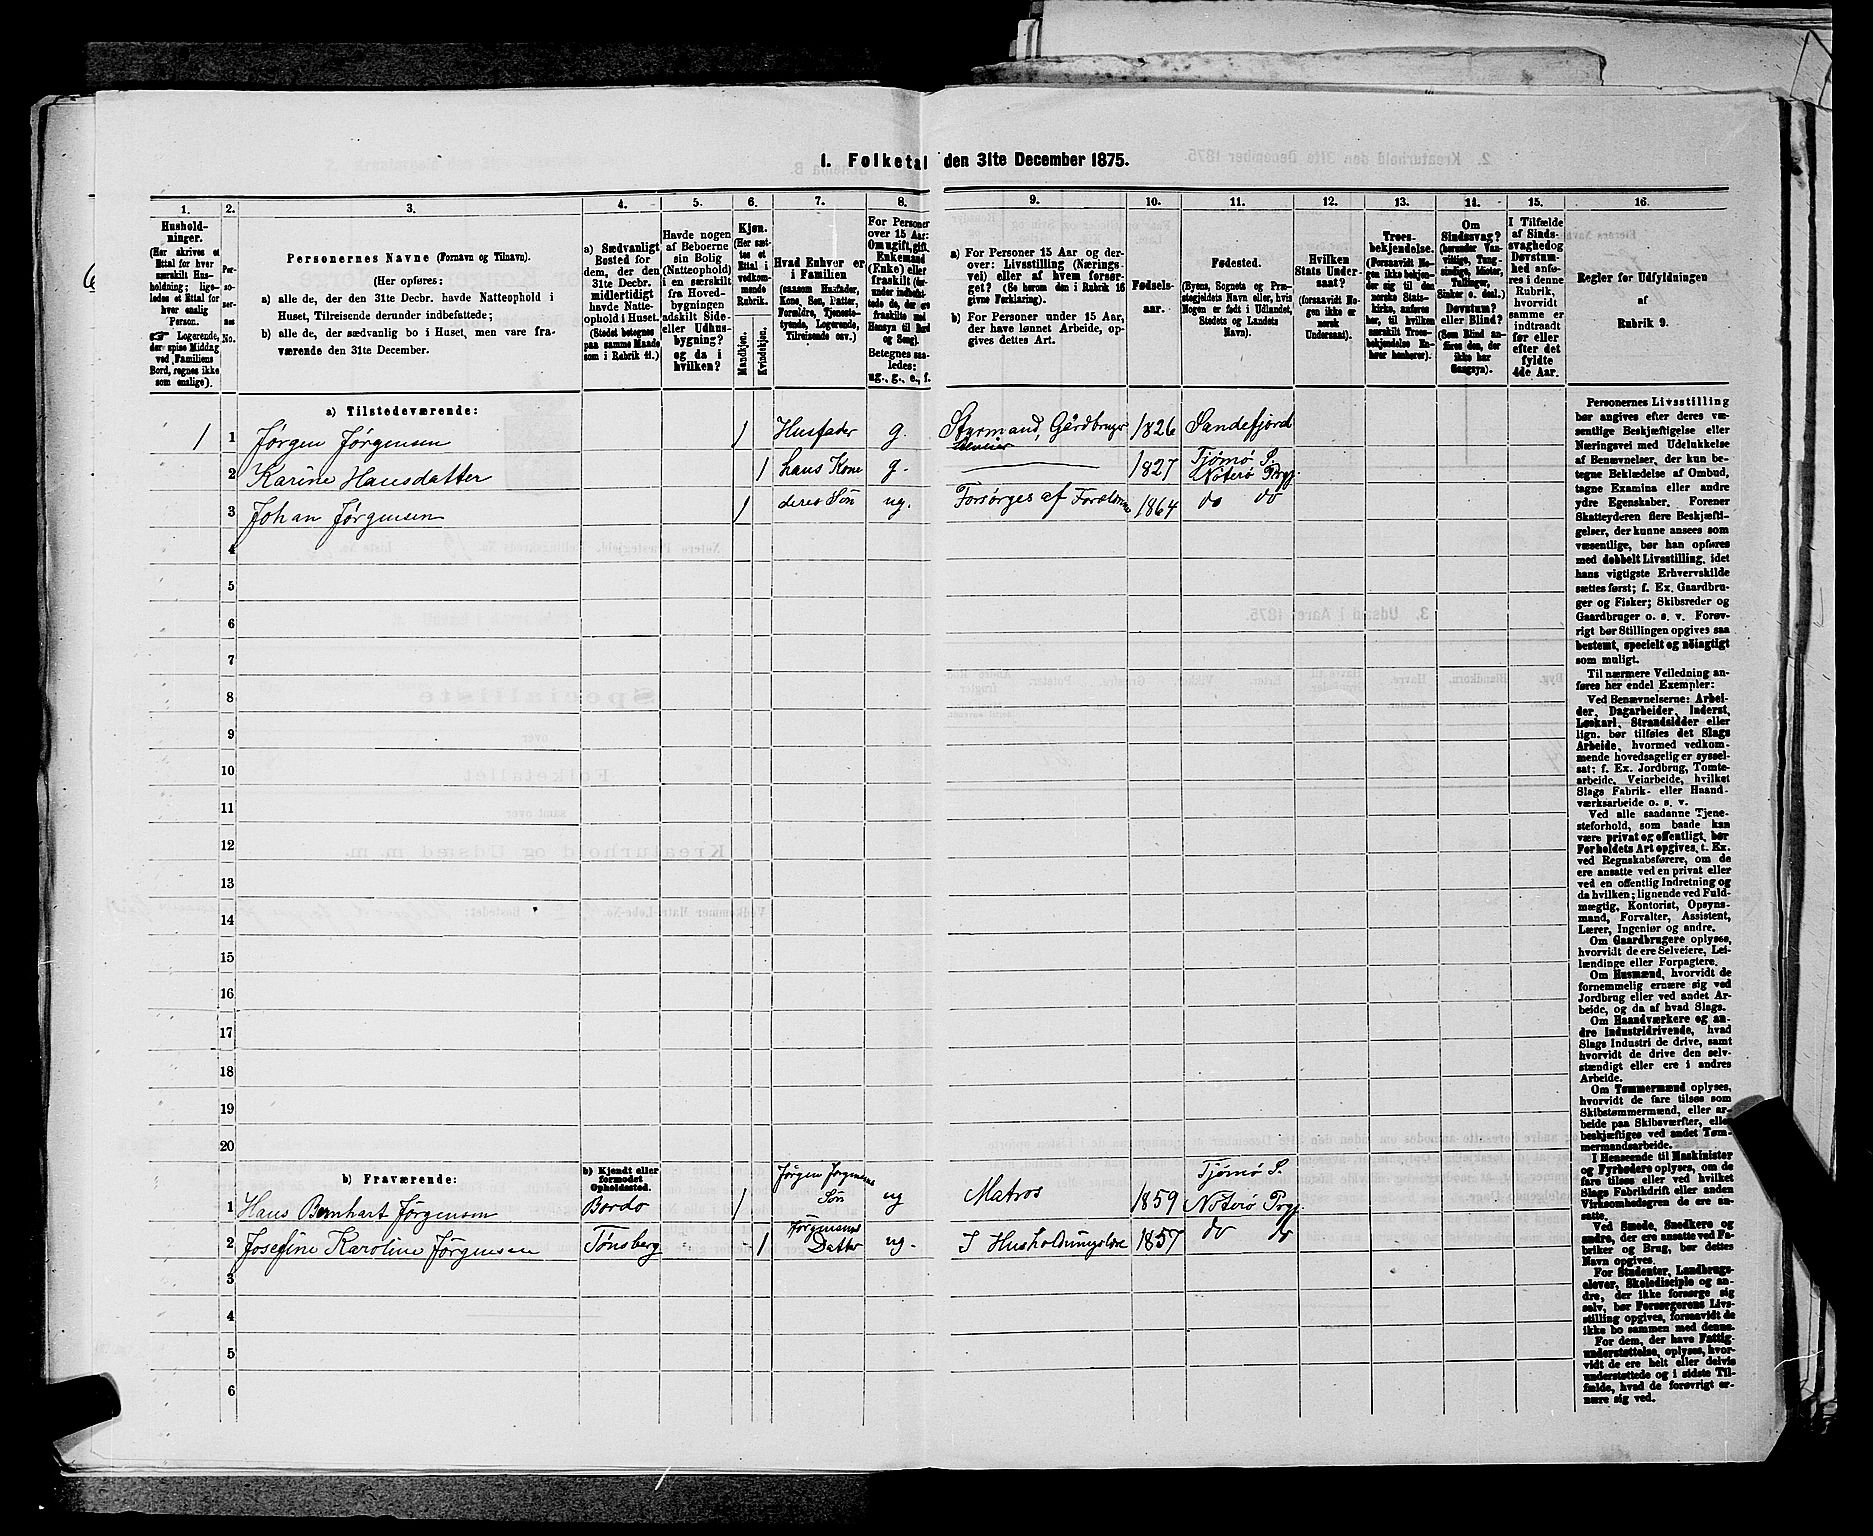 1. Folketal den 31te December 1875.
1. 2. 3. 4. 5. 6. 7. 8. 9. 10. 11. 12. 13. 14. 15. 16.
Hushold-
ninger.
(Her skrives et
Ettal for hver
særskilt Hus-
holdning; lige-
ledes et Ettal for
hver enslig
Person.
☞ Logerende,
der spise Middag
ved Familiens
Bord, regnes ikke
som enslige).
Per-
so-
ner-
nes
No.
Personernes Navne (Fornavn og Tilnavn).
(Her opføres:
a) alle de, der den 31te Decbr. havde Natteophold i
Huset, Tilreisende derunder indbefattede;
b) alle de, der sædvanlig bo i Huset, men vare fra-
værende den 31te December.
a) Sædvanligt
Bosted for
dem, der den
31te Decbr.
midlertidigt
havde Natte-
ophold i Huset.
(Stedet betegnes
paa samme Maade
som i Rubrik 11.)
Havde nogen
af Beboerne
sin Bolig
(Natteophold)
i en særskilt
fra Hoved-
bygningen
adskilt Side-
eller Udhus-
bygning?
og da i
hvilken?
Kjøn.
(Her sæt-
tes et
Ettal i
vedkom-
mende
Rubrik.
Mandkjøn.
Kvindekjøn.
Hvad Enhver er
i Familien
(saasom Husfader,
Kone, Søn, Datter,
Forældre, Tjeneste-
tyende, Logerende,
Tilreisende osv.)
For Personer
over 15 Aar:
Om ugift, gift,
Enkemand
(Enke) eller
fraskilt
Betegnes saa-
ledes:
ug., g., e., f.
a) For Personer 15 Aar og der-
over: Livsstilling (Nærings-
vei) eller af hvem forsør-
get? (Se herom den i Rubrik 16
givne Forklaring).
b) For Personer under 15 Aar,
der have lønnet Arbeide, op-
gives dettes Art.
Fødsels-
aar.
Fødested.
(Byens, Sognets og Præ-
stegjeldets Navn eller, hvis
Nogen er født i Udlandet,
Stedets og Landets
Navn).
Hvilken
Stats Under-
saat?
(forsaavidt No-
gen ikke er
norsk
Undersaat).
Troes-
bekjendelse.
(Forsaavidt No-
gen ikke bekjen-
der sig til den
norske Stats-
kirke, anføres
her, til hvilken
særskilt Troes-
bekjendelse En-
hver henhører).
Om
Sindssvag?
(herunder Van-
vittige, Tung-
sindige, Idioter,
Tullinger,
Sinker o. desl.)
Døvstum?
eller Blind?
(Som Blind an-
føres den, der
ikke har
Gangsyn).
I Tilfælde
af Sinds-
svaghed og
Døvstum-
hed anfø-
res i denne
Rubrik,
hvorvidt
samme er
indtraadt
før eller
efter det
fyldte
4de Aar.
Regler for Udfyldningen
af
Rubrik 9.
a) Tilstedeværende:
1 1 Jørgen Jørgensen 1 Husfader g. Styrmand, Gårdbruger Selveier 1826 Sandefjord
2 Karine Hansdatter 1 hans Kone g. 1827 Tjømø S. Nøterø Prgj.
3 Johan Jørgensen 1 deres Søn ug. Forsørges af Forældrene 1864 do do
4
5
6
7
8
9
10
11
12
13
14
15
16
17
18
19
20
b) Fraværende:
b) Kjendt eller
formodet
Opholdssted.
1 Hans Bernhart Jørgensen Bordo 1 Jørgen Jørgensens Søn ug Matros 1859 Tjømø S. Nøterø Prgj.
2 Josefine Karoline Jørgensen Tønsberg 1 Jørgensens Datter ug. I Husholdningslære 1857 do do
3
4
5
6
Personernes Livsstilling
bør angives efter deres væ-
sentlige Beskjæftigelse eller
Næringsvei med Udelukkelse
af Benævnelser, der kun be-
tegne Beklædelse af Ombud,
tagne Examina eller andre
ydre Egenskaber. Forener
Skatteyderen flere Beskjæfti-
gelser, der kunne ansees som
væsentlige, bør han opføres
med dobbelt Livsstilling, idet
hans vigtigste Erhvervskilde
sættes først; f. Ex. Gaardbru-
ger og Fisker; Skibsreder og
Gaardbruger o. s. v. Forøv-
rigt bør Stillingen opgives saa
bestemt, specielt og nøiagtigt
som muligt.
Til nærmere Veiledning an-
føres her endel Exempler:
Ved Benævnelserne: Arbei-
der, Dagarbeider, Inderst,
Løskarl, Strandsidder eller
lign. bør tilføies det Slags
Arbeide, hvormed vedkom-
mende hovedsagelig er syssel-
sat; f. Ex. Jordbrug, Tomte-
arbeide, Veiarbeide, hvilket
Slags Fabrik- eller Haand-
værksarbeide o. s. v.
Ved alle saadanne Tjene-
steforhold, som baade kan
være privat og offentligt, bør
Forholdets Art opgives, t. Ex.
ved Regnskabsførere, om de
ere ansatte ved en privat eller
ved en offentlig Indretning og
da hvilken; lignende ved Fuld-
mægtig, Kontorist, Opsyns-
mand, Forvalter, Assistent,
Lærer, Ingeniør og andre.
Om Gaardbrugere oplyses,
hvorvidt de ere Selveiere, Lei-
lændinge eller Forpagtere.
Om Husmænd, hvorvidt de
fornemmelig ernære sig ved
Jordbrug eller ved andet Ar-
beide, og da af hvad Slags.
Om Haandværkere og an-
dre Industridrivende, hvad
Slags Industri de drive, samt
hvorvidt de drive den selv-
stændigt eller ere i andres
Arbeide.
Om Tømmermænd oplyses,
hvorvidt de fare tilsøs som
Skibstømmermænd, eller ar-
beide paa Skibsværfter, eller
beskjæftiges ved andet Tøm-
mermandsarbeide.
I Henseende til Maskinister
og Fyrbødere oplyses, om de
fare tilsøs eller ved hvilket
Slags Fabrikdrift eller anden
Virksomhedsgren de ere an-
satte.
Ved Smede, Snedkere og
andre, der ere ansatte ved Fa-
briker og Brug, bør dettes
Navn opgives.
For Studenter, Landbrugs-
elever, Skoledisciple og an-
dre, der ikke forsørge sig
selv, bør Forsørgerens Livs-
stilling opgives, forsaavidt de
ikke bo sammen med denne.
For dem, der have Fattig-
understøttelse, oplyses, hvor-
vidt de ere helt eller delvis
understøttede og i sidste Til-
fælde, hvad de forøvrigt er-
nære sig ved.